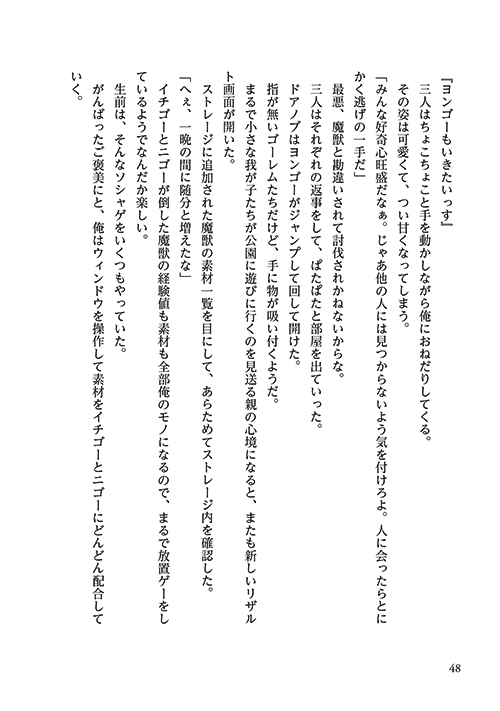 『ヨンゴーもいきたいっす』
三人はちょこちょこと手を動かしながら俺におねだりしてくる。
その姿は可愛くて、つい甘くなってしまう。
「みんな好奇心旺盛だなぁ。じゃあ他の人には見つからないよう気を付けろよ。人に会ったらとに
かく逃げの一手だ」
最悪、魔獣と勘違いされて討伐されかねないからな。
三人はそれぞれの返事をして、ぱたぱたと部屋を出ていった。
ドアノブはヨンゴーがジャンプして回して開けた。
指が無いゴーレムたちだけど、手に物が吸い付くようだ。
まるで小さな我が子たちが公園に遊びに行くのを見送る親の心境になると、またも新しいリザル
ト画面が開いた。
ストレージに追加された魔獣の素材一覧を目にして、あらためてストレージ内を確認した。
「へぇ、一晩の間に随分と増えたな」
イチゴーとニゴーが倒した魔獣の経験値も素材も全部俺のモノになるので、まるで放置ゲーをし
ているようでなんだか楽しい。
生前は、そんなソシャゲをいくつもやっていた。
がんばったご褒美にと、俺はウィンドウを操作して素材をイチゴーとニゴーにどんどん配合して
いく。
48